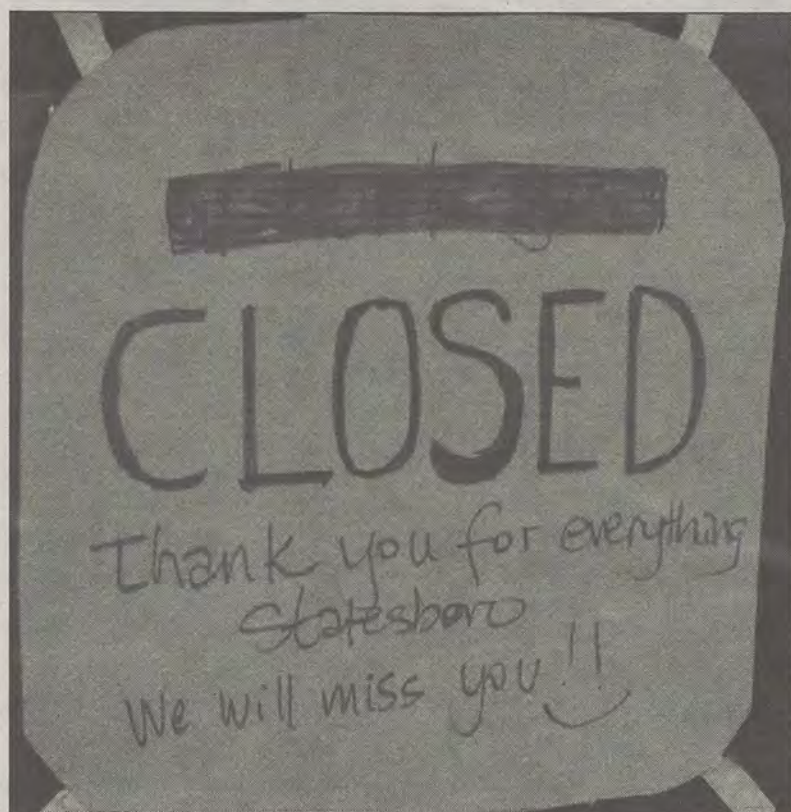 CLOSED
Thank you for everything
Statesboro
We will miss you!!